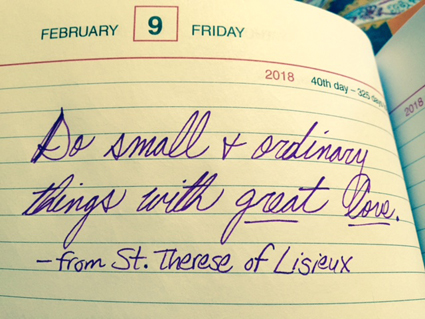 FEBRUARY 9 FRIDAY
2018 40th day – 325 days
2018
Do small & ordinary
things with great love.
- from St. Therese of Lisieux